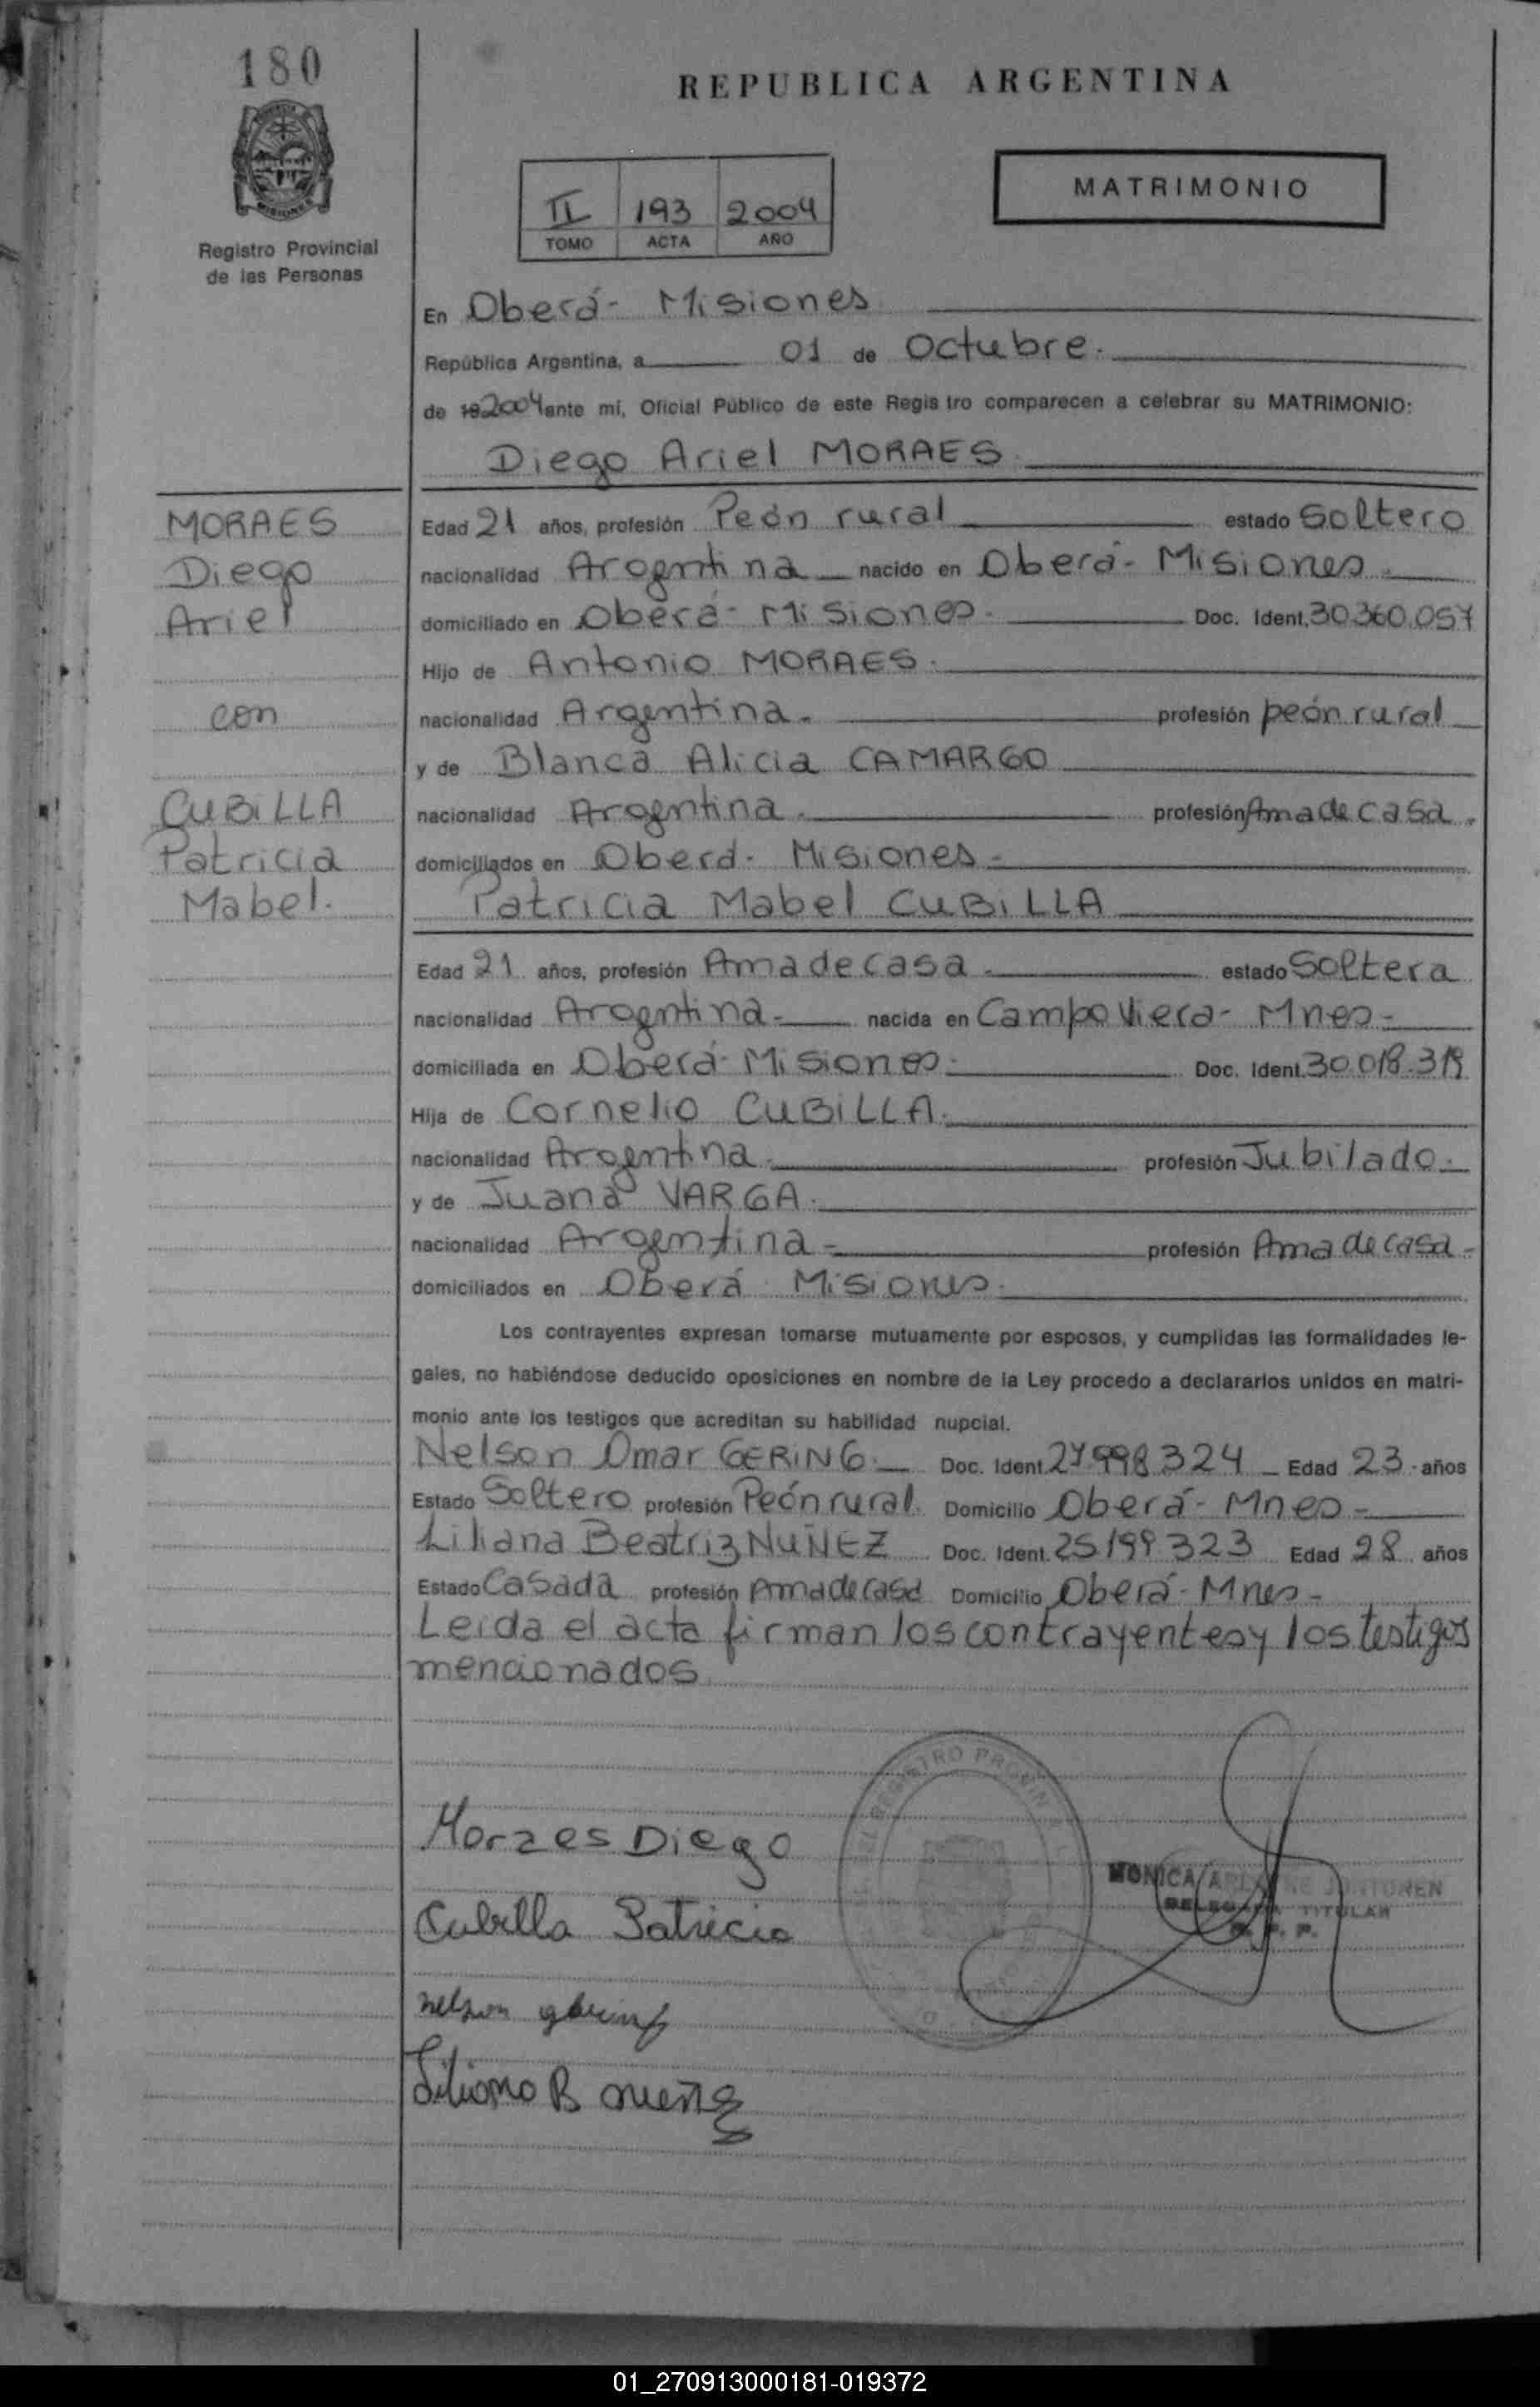 180
REPUBLICA ARGENTINA
MATRIMONIO
II 193 2004
TOMO ACTA AÑO
Registro Provincial
de las Personas
En Oberá - Misiones
República Argentina, a 01 de Octubre.
de 19 2004 ante mí, Oficial Público de este Regis tro comparecen a celebrar su MATRIMONIO:
Diego Ariel MORAES
MORAES
Diego
Ariel
con
CUBILLA
Patricia
Mabel.
Edad 21 años, profesión Peón rural estado Soltero
nacionalidad Argentina nacido en Oberá - Misiones.
domiciliado en Oberá - Misiones. Doc. Ident. 30.360.057
Hijo de Antonio MORAES.
nacionalidad Argentina. profesión peón rural
y de Blanca Alicia CAMARGO
nacionalidad Argentina. profesión Ama de casa.
domiciliados en Oberá - Misiones -
Patricia Mabel CUBILLA
Edad 21 años, profesión Ama de casa. estado Soltera
nacionalidad Argentina - nacida en Campo Viera - Mnes -
domiciliada en Oberá - Misiones. Doc. Ident. 30.018.319
Hija de Cornelio CUBILLA.
nacionalidad Argentina. profesión Jubilado.
y de Juana VARGA.
nacionalidad Argentina - profesión Ama de casa -
domiciliados en Oberá Misiones.
Los contrayentes expresan tomarse mutuamente por esposos, y cumplidas las formalidades le-
gales, no habiéndose deducido oposiciones en nombre de la Ley procedo a declararlos unidos en matri-
monio ante los testigos que acreditan su habilidad nupcial.
Nelson Omar GERING. Doc. Ident. 27998324 Edad 23 años
Estado Soltero profesión Peón rural. Domicilio Oberá - Mnes -
Liliana Beatriz NUÑEZ Doc. Ident. 25199323 Edad 28 años
Estado Casada profesión Ama de casa Domicilio Oberá - Mnes -
Leida el acta firman los contrayentes y los testigos
mencionados
REGISTRO PROVIN
Moraes Diego
MONICA
DELEGADA TITULAR
R. P. P.
Cubilla Patricia
nelson gering
Liliana B nuñez
01_270913000181-019372